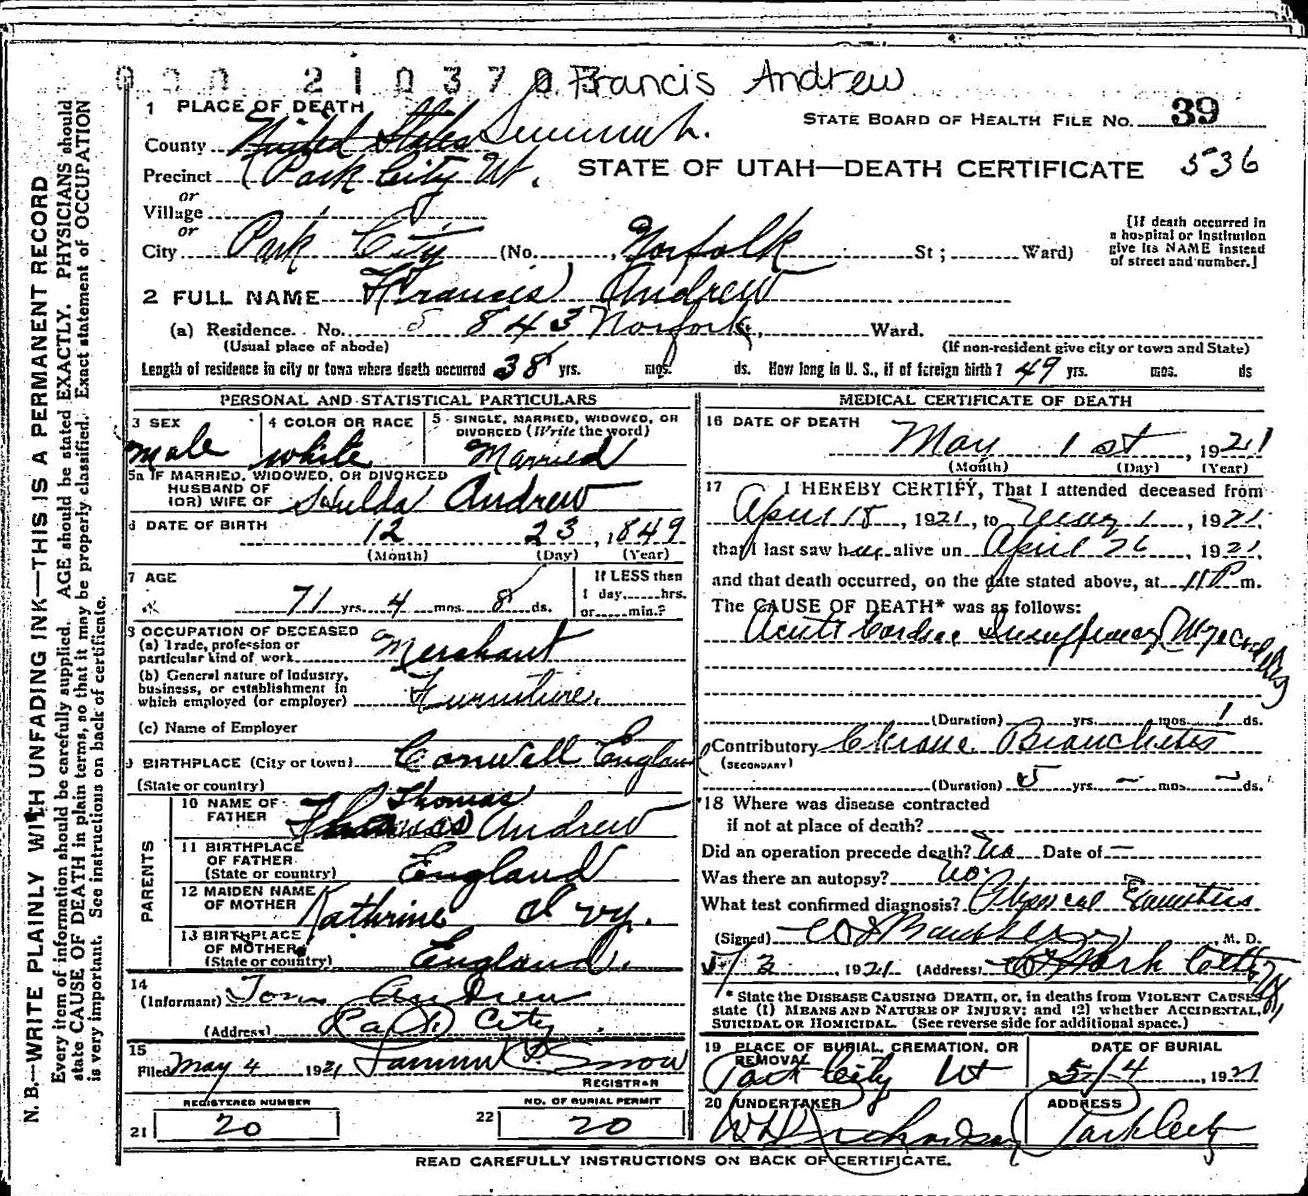 000 2103703 Francis Andrew
1 PLACE OF DEATH
STATE BOARD OF HEALTH FILE NO. 39
County United States Summit.
STATE OF UTAH—DEATH CERTIFICATE 536
Precinct Park City Ut.
or
Village
or
City Park City (No. , Norfolk St ; Ward)
[If death occurred in
a hospital or institution
give its NAME instead
of street and number.]
2 FULL NAME Francis Andrew
(a) Residence. No. 843 Norfork, Ward.
(Usual place of abode) (If non-resident give city or town and State)
Length of residence in city or town where death occurred 38 yrs. mos. ds. How long in U. S., if of foreign birth? 49 yrs. mos. ds
PERSONAL AND STATISTICAL PARTICULARS
3 SEX male
4 COLOR OR RACE white
5 SINGLE, MARRIED, WIDOWED, OR
DIVORCED (Write the word)
Married
5a IF MARRIED, WIDOWED, OR DIVORCED
HUSBAND OF
(OR) WIFE OF Hulda Andrew
6 DATE OF BIRTH 12 23, 1849
(Month) (Day) (Year)
7 AGE 71 yrs. 4 mos. 8 ds.
If LESS then
1 day, hrs.
or min.?
8 OCCUPATION OF DECEASED
(a) Trade, profession or
particular kind of work Merchant
(b) General nature of Industry,
business, or establishment in
which employed (or employer) Furniture.
(c) Name of Employer
9 BIRTHPLACE (City or town) Conwell England
(State or country)
PARENTS
10 NAME OF
FATHER Thomas Thomas Andrew
11 BIRTHPLACE
OF FATHER
(State or country) England
12 MAIDEN NAME
OF MOTHER Kathrine Ivy.
13 BIRTHPLACE
OF MOTHER
(State or country) England.
14
(Informant) Tom Andrew
(Address) Park City
15
Filed May 4 1921 Snow
REGISTRAR
REGISTERED NUMBER
21 20
NO. OF BURIAL PERMIT
22 20
MEDICAL CERTIFICATE OF DEATH
16 DATE OF DEATH
May 1st, 1921
(Month) (Day) (Year)
17 I HEREBY CERTIFY, That I attended deceased from
April 18, 1921, to May 1, 1921,
that I last saw him alive on April 26, 1921,
and that death occurred, on the date stated above, at 11 P m.
The CAUSE OF DEATH* was as follows:
Acute Cardiac Insufficiency (Myocarditis)
(Duration) yrs. mos. 1 ds.
Contributory Chronic Bronchitis
(SECONDARY)
(Duration) 5 yrs. – mos. – ds.
18 Where was disease contracted
if not at place of death?
Did an operation precede death? No Date of —
Was there an autopsy? No.
What test confirmed diagnosis? Physical
(Signed) M. D.
5/3 1921 (Address) Park City Ut
* State the DISEASE CAUSING DEATH, or, in deaths from VIOLENT CAUSES,
state (1) MEANS AND NATURE OF INJURY; and (2) whether ACCIDENTAL,
SUICIDAL OR HOMICIDAL. (See reverse side for additional space.)
19 PLACE OF BURIAL, CREMATION, OR
REMOVAL
Park City Ut
DATE OF BURIAL
5/4, 1921
20 UNDERTAKER
W H Richardson
ADDRESS
Park City
READ CAREFULLY INSTRUCTIONS ON BACK OF CERTIFICATE.
N. B.—WRITE PLAINLY WITH UNFADING INK—THIS IS A PERMANENT RECORD
Every item of information should be carefully supplied. AGE should be stated EXACTLY. PHYSICIANS should
state CAUSE OF DEATH in plain terms, so that it may be properly classified. Exact statement of OCCUPATION
is very important. See instructions on back of certificate.